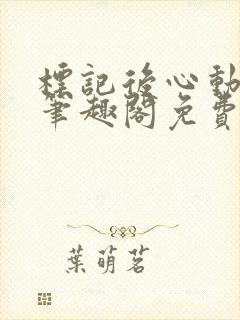 標記後心動
筆趣閣免費
葉萌茗